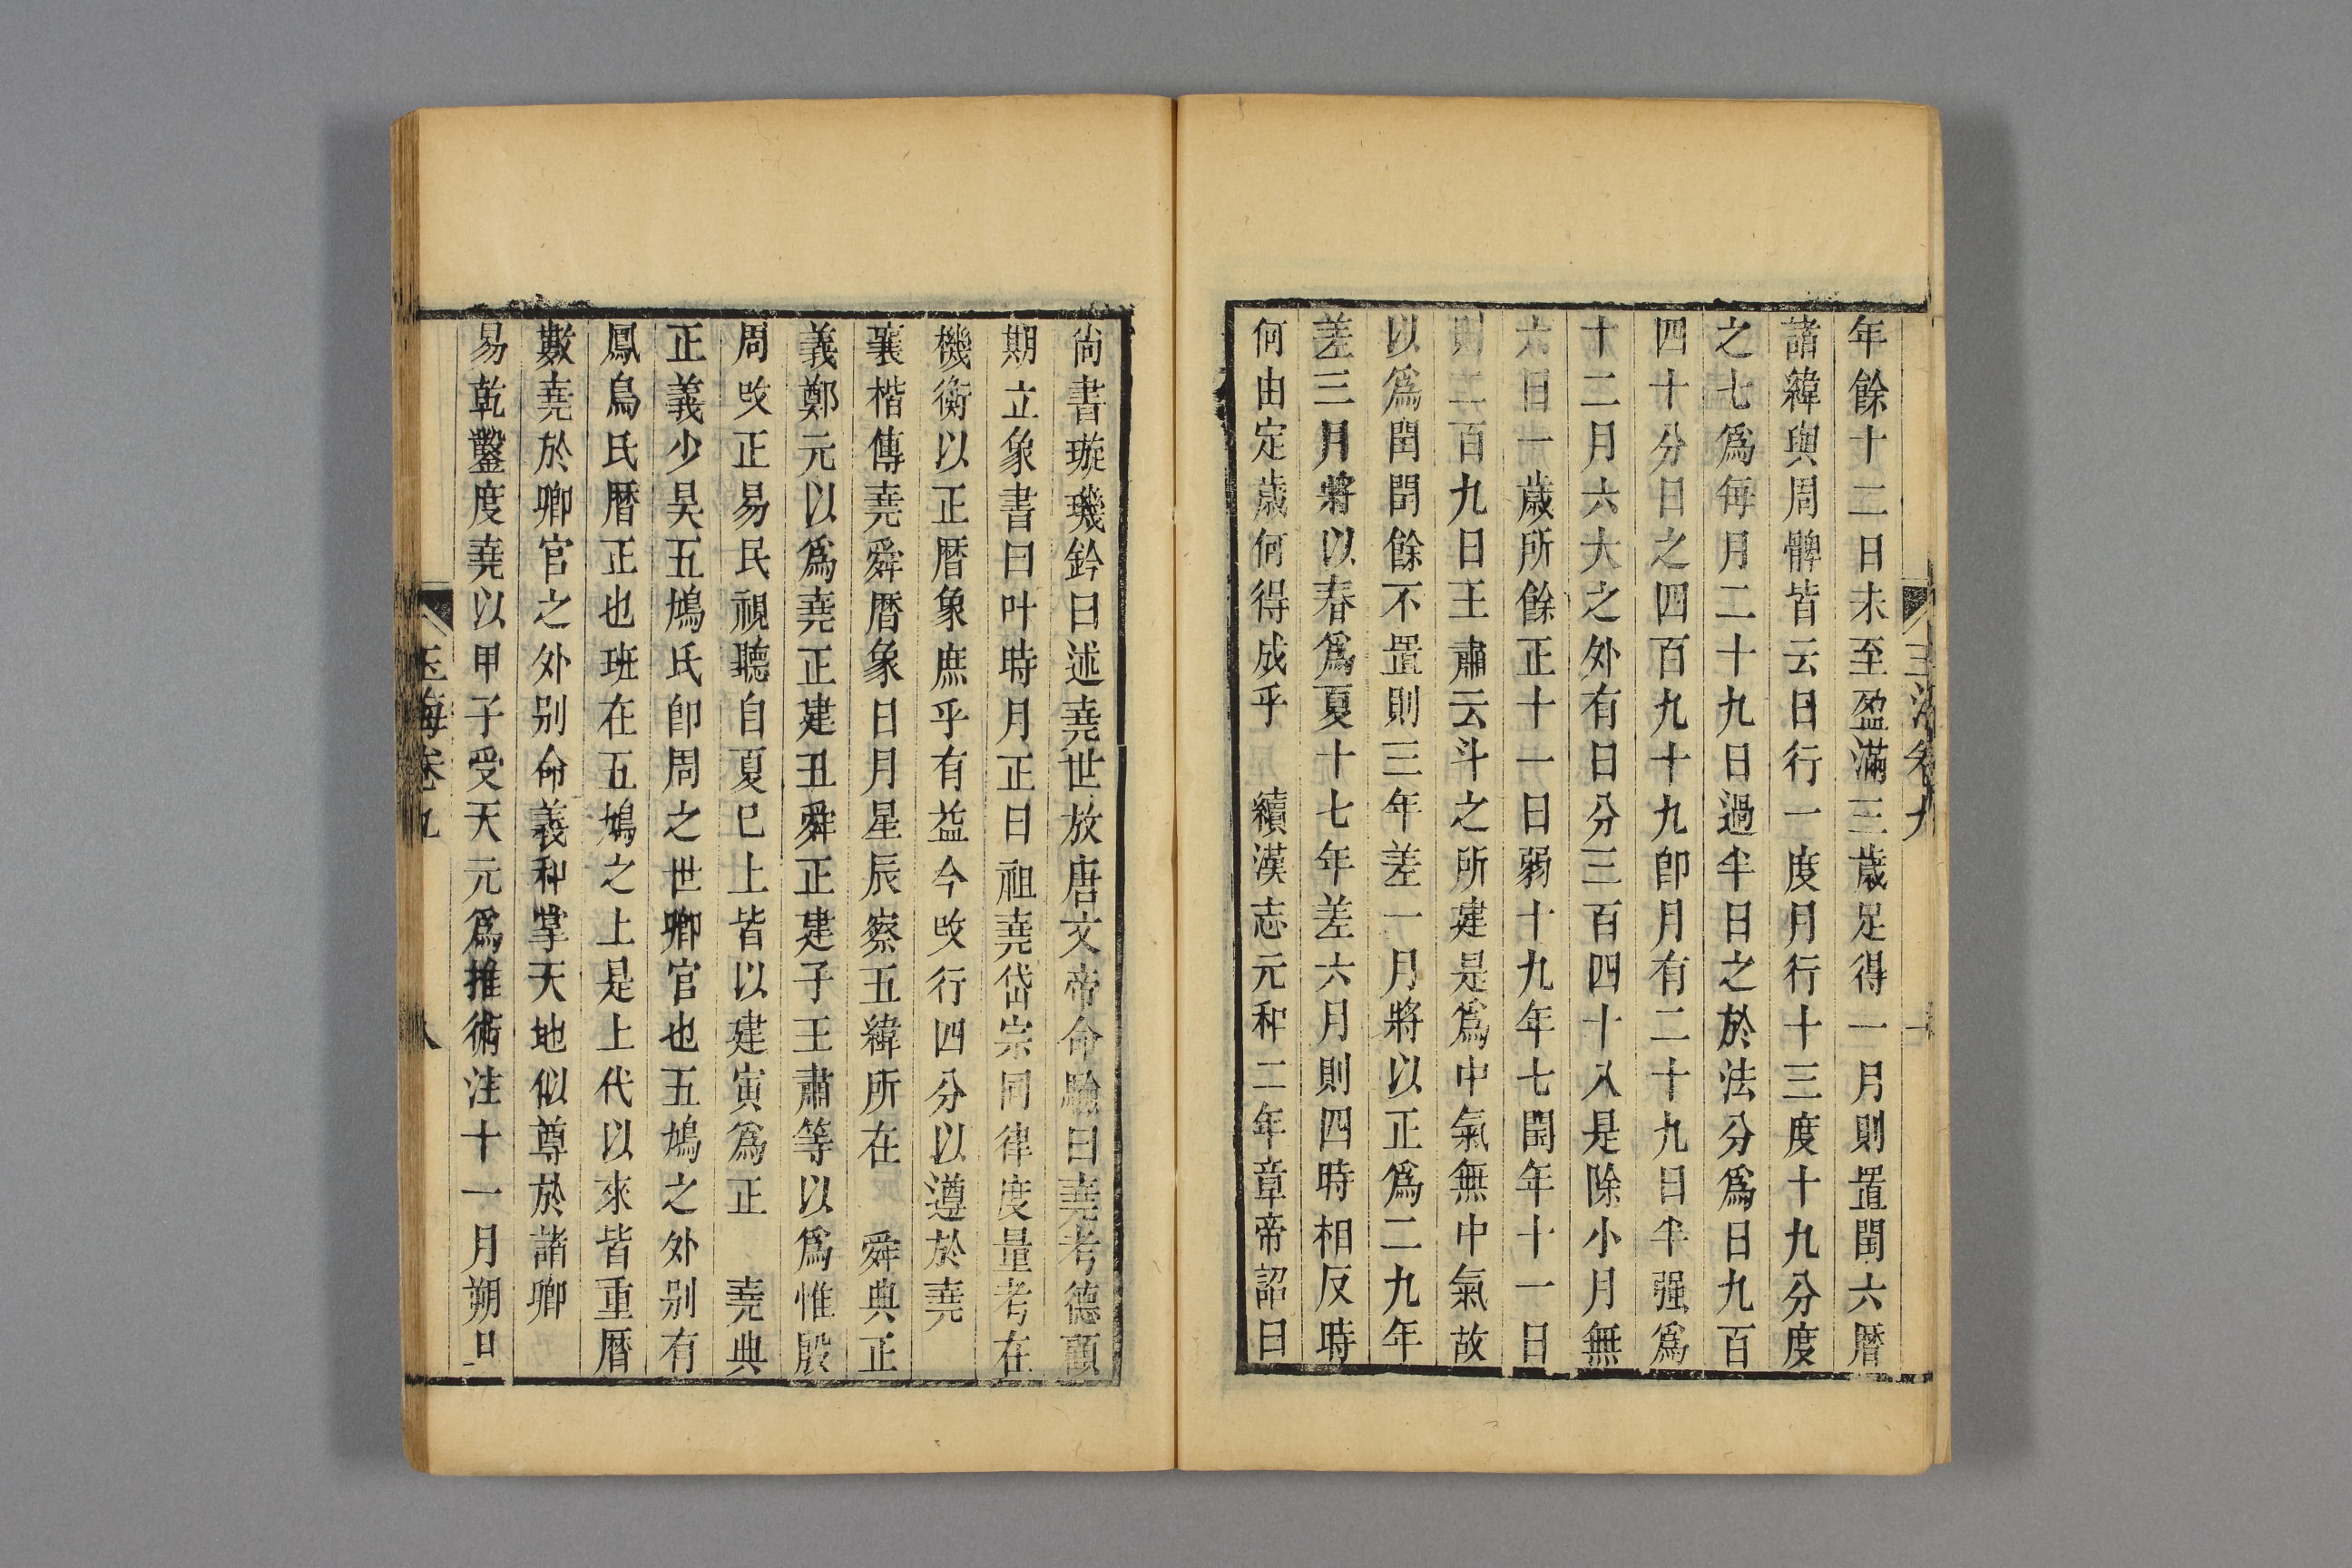 玉海卷九
年餘十二日未至盈滿三歲足得一月則置閏六曆
諸緯與周髀皆云日行一度月行十三度十九分度
之七爲每月二十九日過半日之於法分爲日九百
四十分日之四百九十九卽月有二十九日半强爲
十二月六大之外有日分三百四十八是除小月無
六日一歲所餘正十一日弱十九年七閏年十一日
則二百九日王肅云斗之所建是爲中氣無中氣故
以爲閏閏餘不置則三年差一月將以正爲二九年
差三月將以春爲夏十七年差六月則四時相反時
何由定歲何得成乎 續漢志元和二年章帝詔曰
尚書璇璣鈐曰述堯世放唐文帝命驗曰堯考德顧
期立象書曰叶時月正日祖堯岱宗同律度量考在
機衡以正曆象庶乎有益今攺行四分以遵於堯
襄楷傳堯舜曆象日月星辰察五緯所在 舜典正
義鄭元以爲堯正建丑舜正建子王肅等以爲惟殷
周攺正易民視聽自夏已上皆以建寅爲正 堯典
正義少昊五鳩氏卽周之世卿官也五鳩之外别有
鳳鳥氏曆正也班在五鳩之上是上代以來皆重曆
數堯於卿官之外别命義和掌天地似尊於諸卿
易乾鑿度堯以甲子受天元爲推術注十一月朔日
玉海卷九 八